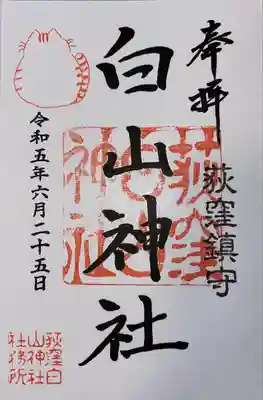 奉拝
荻窪鎮守
荻久窪
白山神社
白山神社
令和五年六月二十五日
荻窪白
山神社
社務所